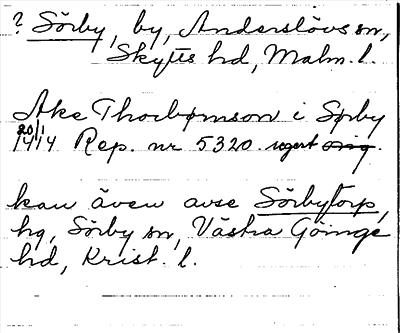 ? Sörby, by, Anderslövs sn,
Skytts hd, Malm. l.
Ake Thorbørnson i Sørby
20/1 1414 Rep. nr 5320. vogert orig.
kan även avse Sörbytorp,
hg, Sörby sn, Västra Göinge
hd, Krist. l.